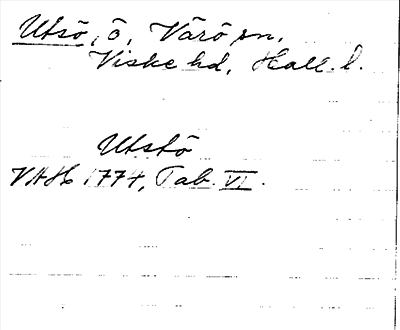 Utsö, ö, Värö sn,
Viske hd, Hall. l.
Utstö
VAH 1774, Tab. VI.